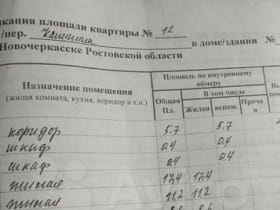 икация площади квартиры № 12
/пер. в доме/здании №
Новочеркасске Ростовской области
Назначение помещения
(жилая комната, кухня, коридор и т.п.)
Площадь по внутреннему обмеру
Общая Пл.
В том числе
Жилая
вспом.
Проча я
коридор 5.7 5.7
шкаф 0.4 0.4
шкаф 0.4 0.4
жилая 17,4 17,4
жилая 11,2 11,2